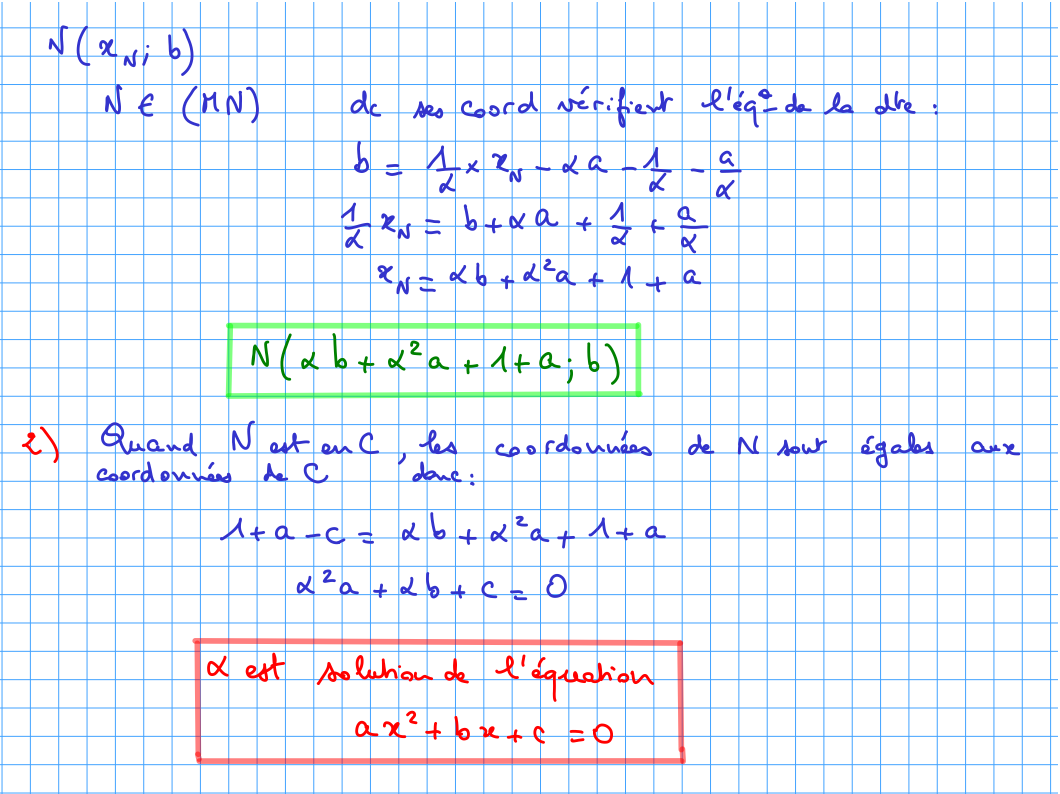 N(x_N; b)
N ∈ (MN) dc ses coord vérifient l'éq° de la dte :
b = 1/α × x_N - αa - 1/α - a/α
1/α x_N = b + αa + 1/α + a/α
x_N = αb + α²a + 1 + a
N(αb + α²a + 1 + a; b)
2) Quand N est en C, les coordonnées de N sont égales aux
coordonnées de C donc :
1 + a - c = αb + α²a + 1 + a
α²a + αb + c = 0
α est solution de l'équation
ax² + bx + c = 0